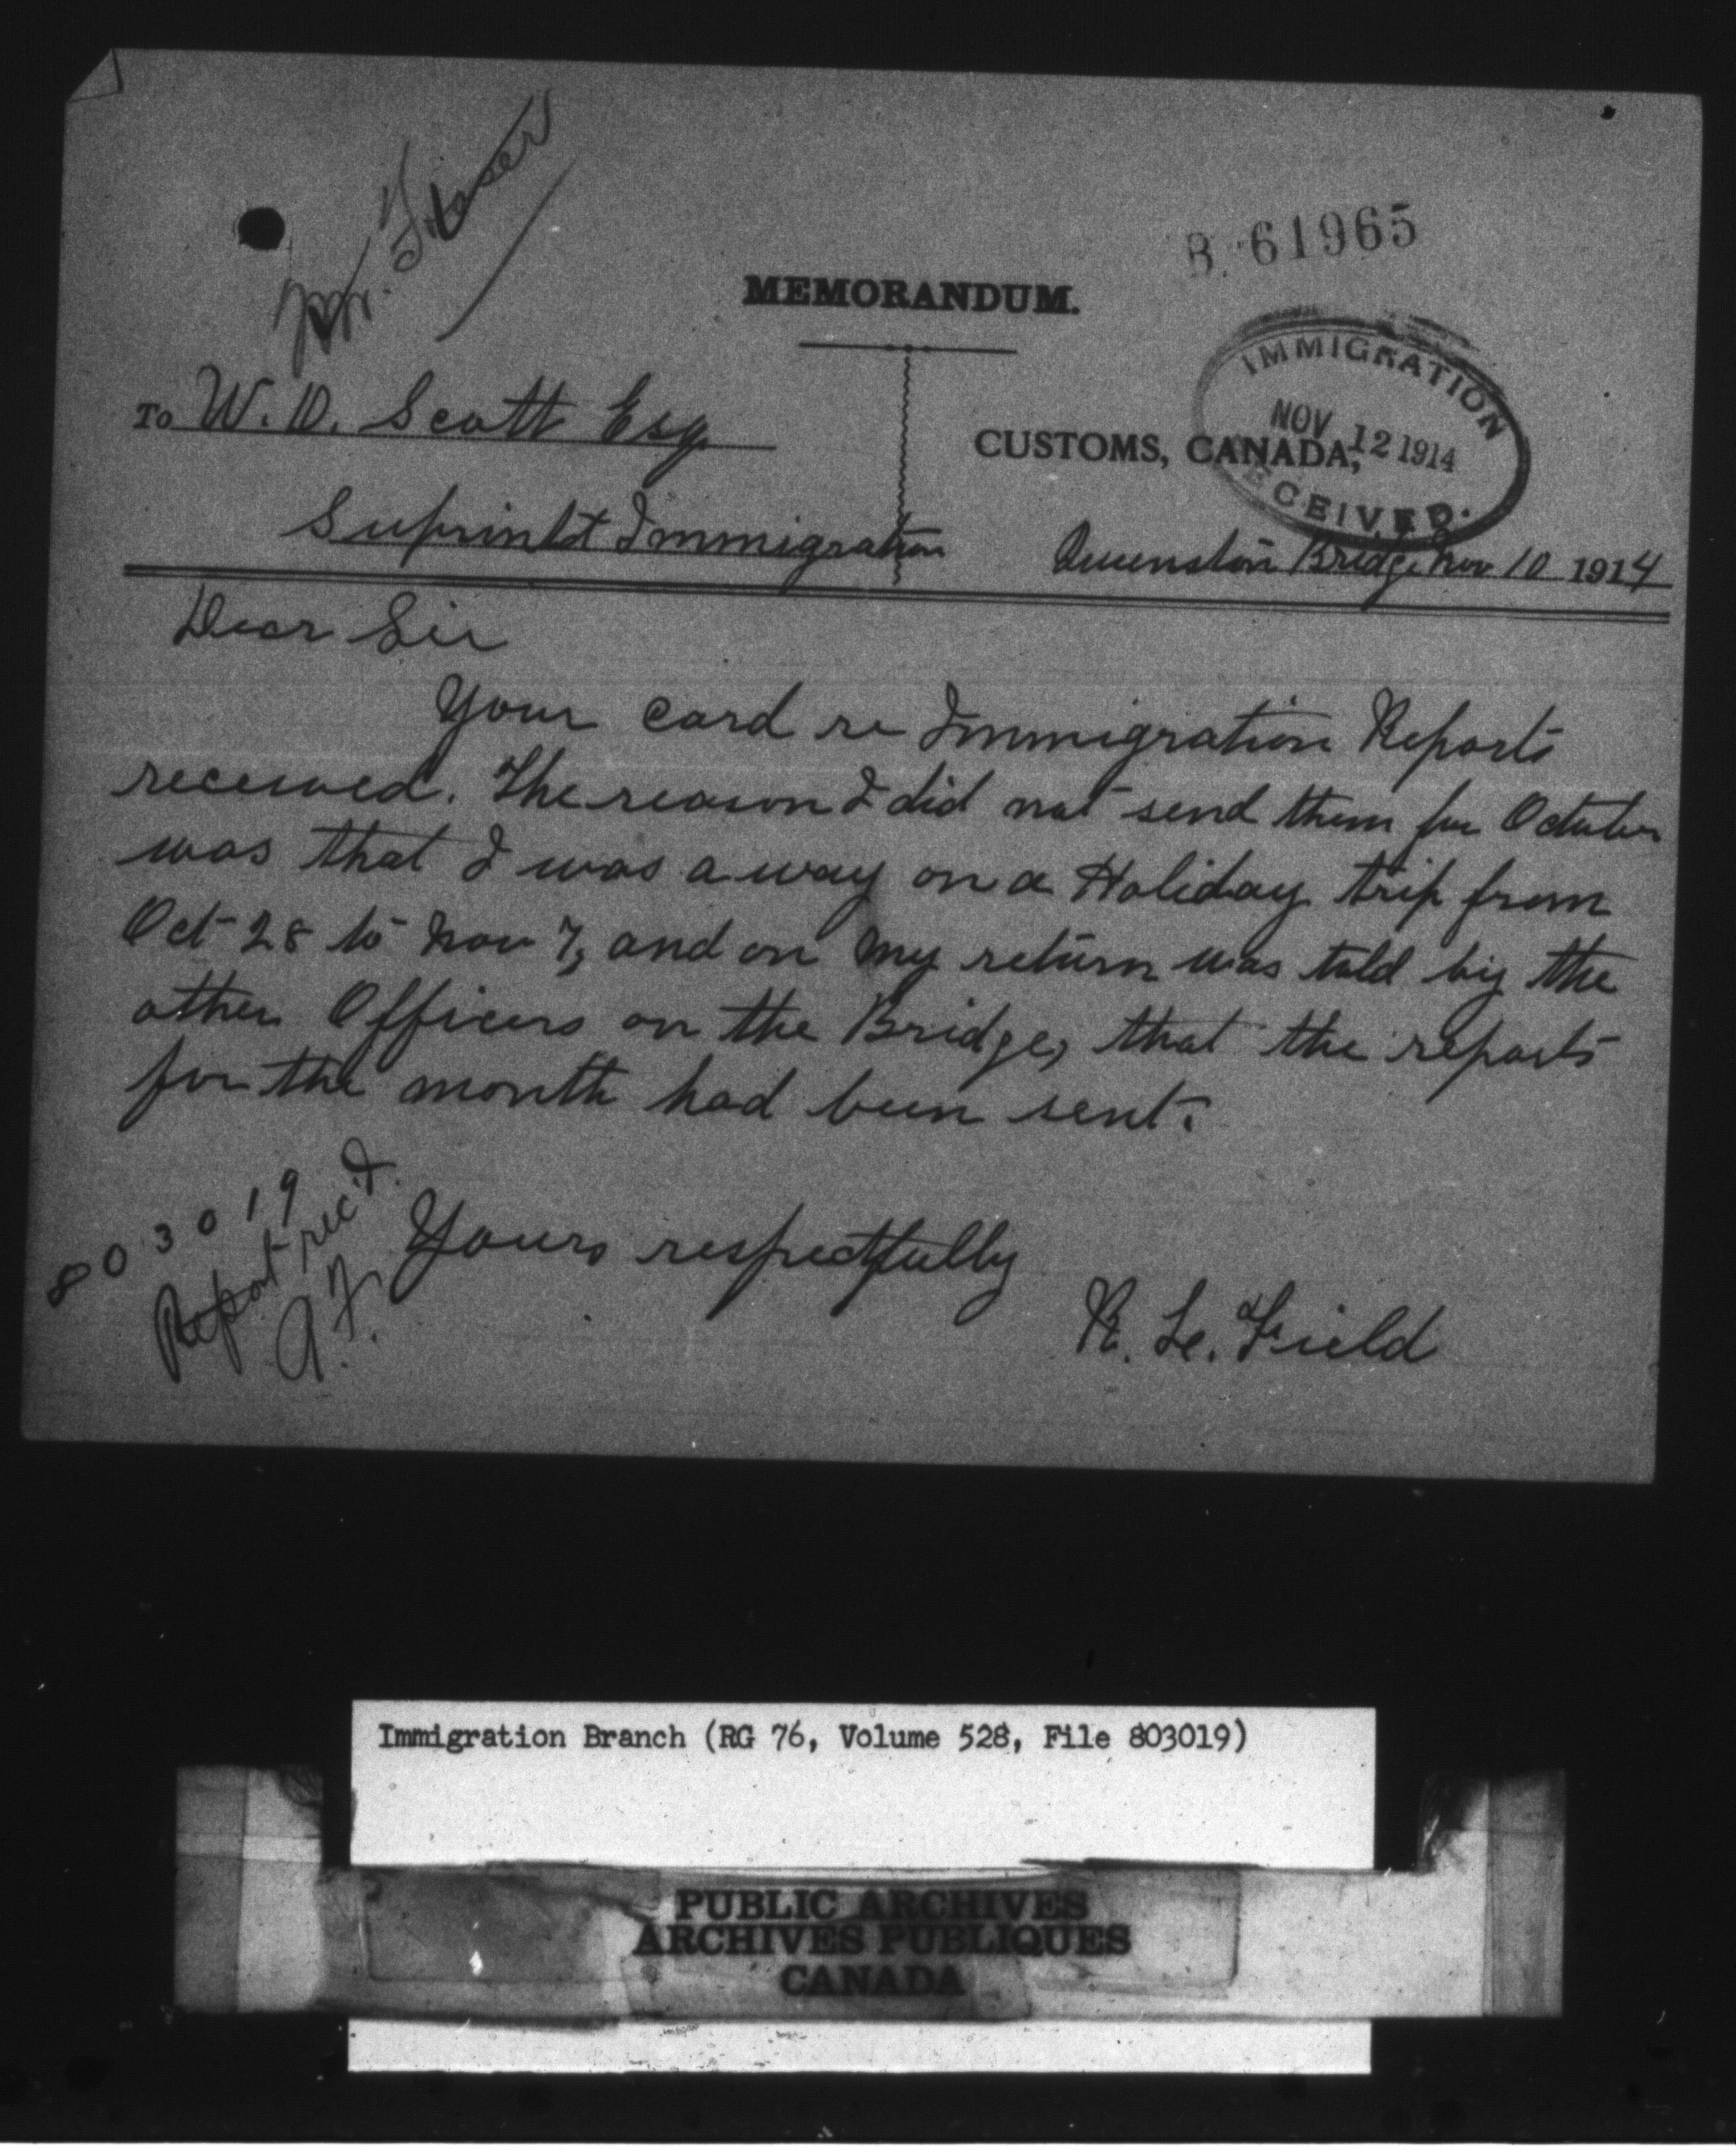 Mr. Fraser
B. 61965
MEMORANDUM.
IMMIGRATION
NOV 12 1914
ECEIVED.
To W. D. Scott Esq
CUSTOMS, CANADA,
Suprintdt Immigration
Queenston Bridge Nov 10 1914
Dear Sir
Your card re Immigration Reports
received. The reason I did not send them for October
was that I was away on a Holiday trip from
Oct 28 to Nov 7, and on my return was told by the
other Officers on the Bridge, that the reports
for the month had been sent.
803019
Report rec'd.
A.F.
Yours respectfully
Field
Immigration Branch (RG 76, Volume 528, File 803019)
PUBLIC ARCHIVES
ARCHIVES PUBLIQUES
CANADA